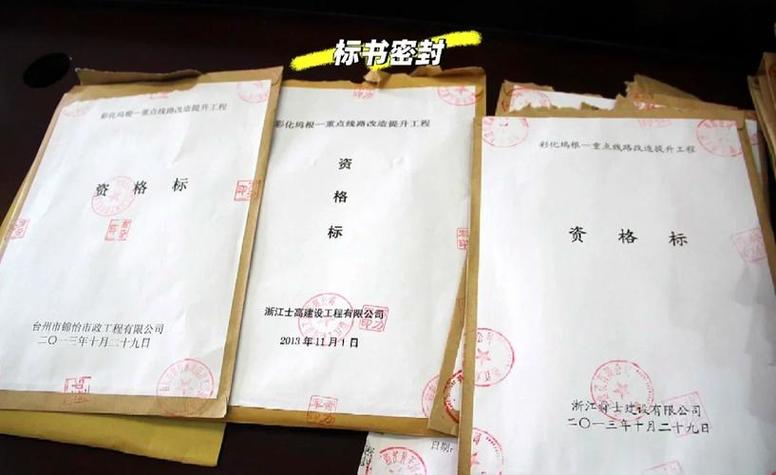 标书密封
彩化坞根一重点线路改造提升工程
资格标
台州市锦怡市政工程有限公司
二〇一三年十月二十九日
彩化坞根一重点线路改造提升工程
资
格
标
浙江士高建设工程有限公司
2013年11月1日
彩化坞根一重点线路改造提升工程
资格标
士建设有限公司
二〇一三年十月二十九日
日期: